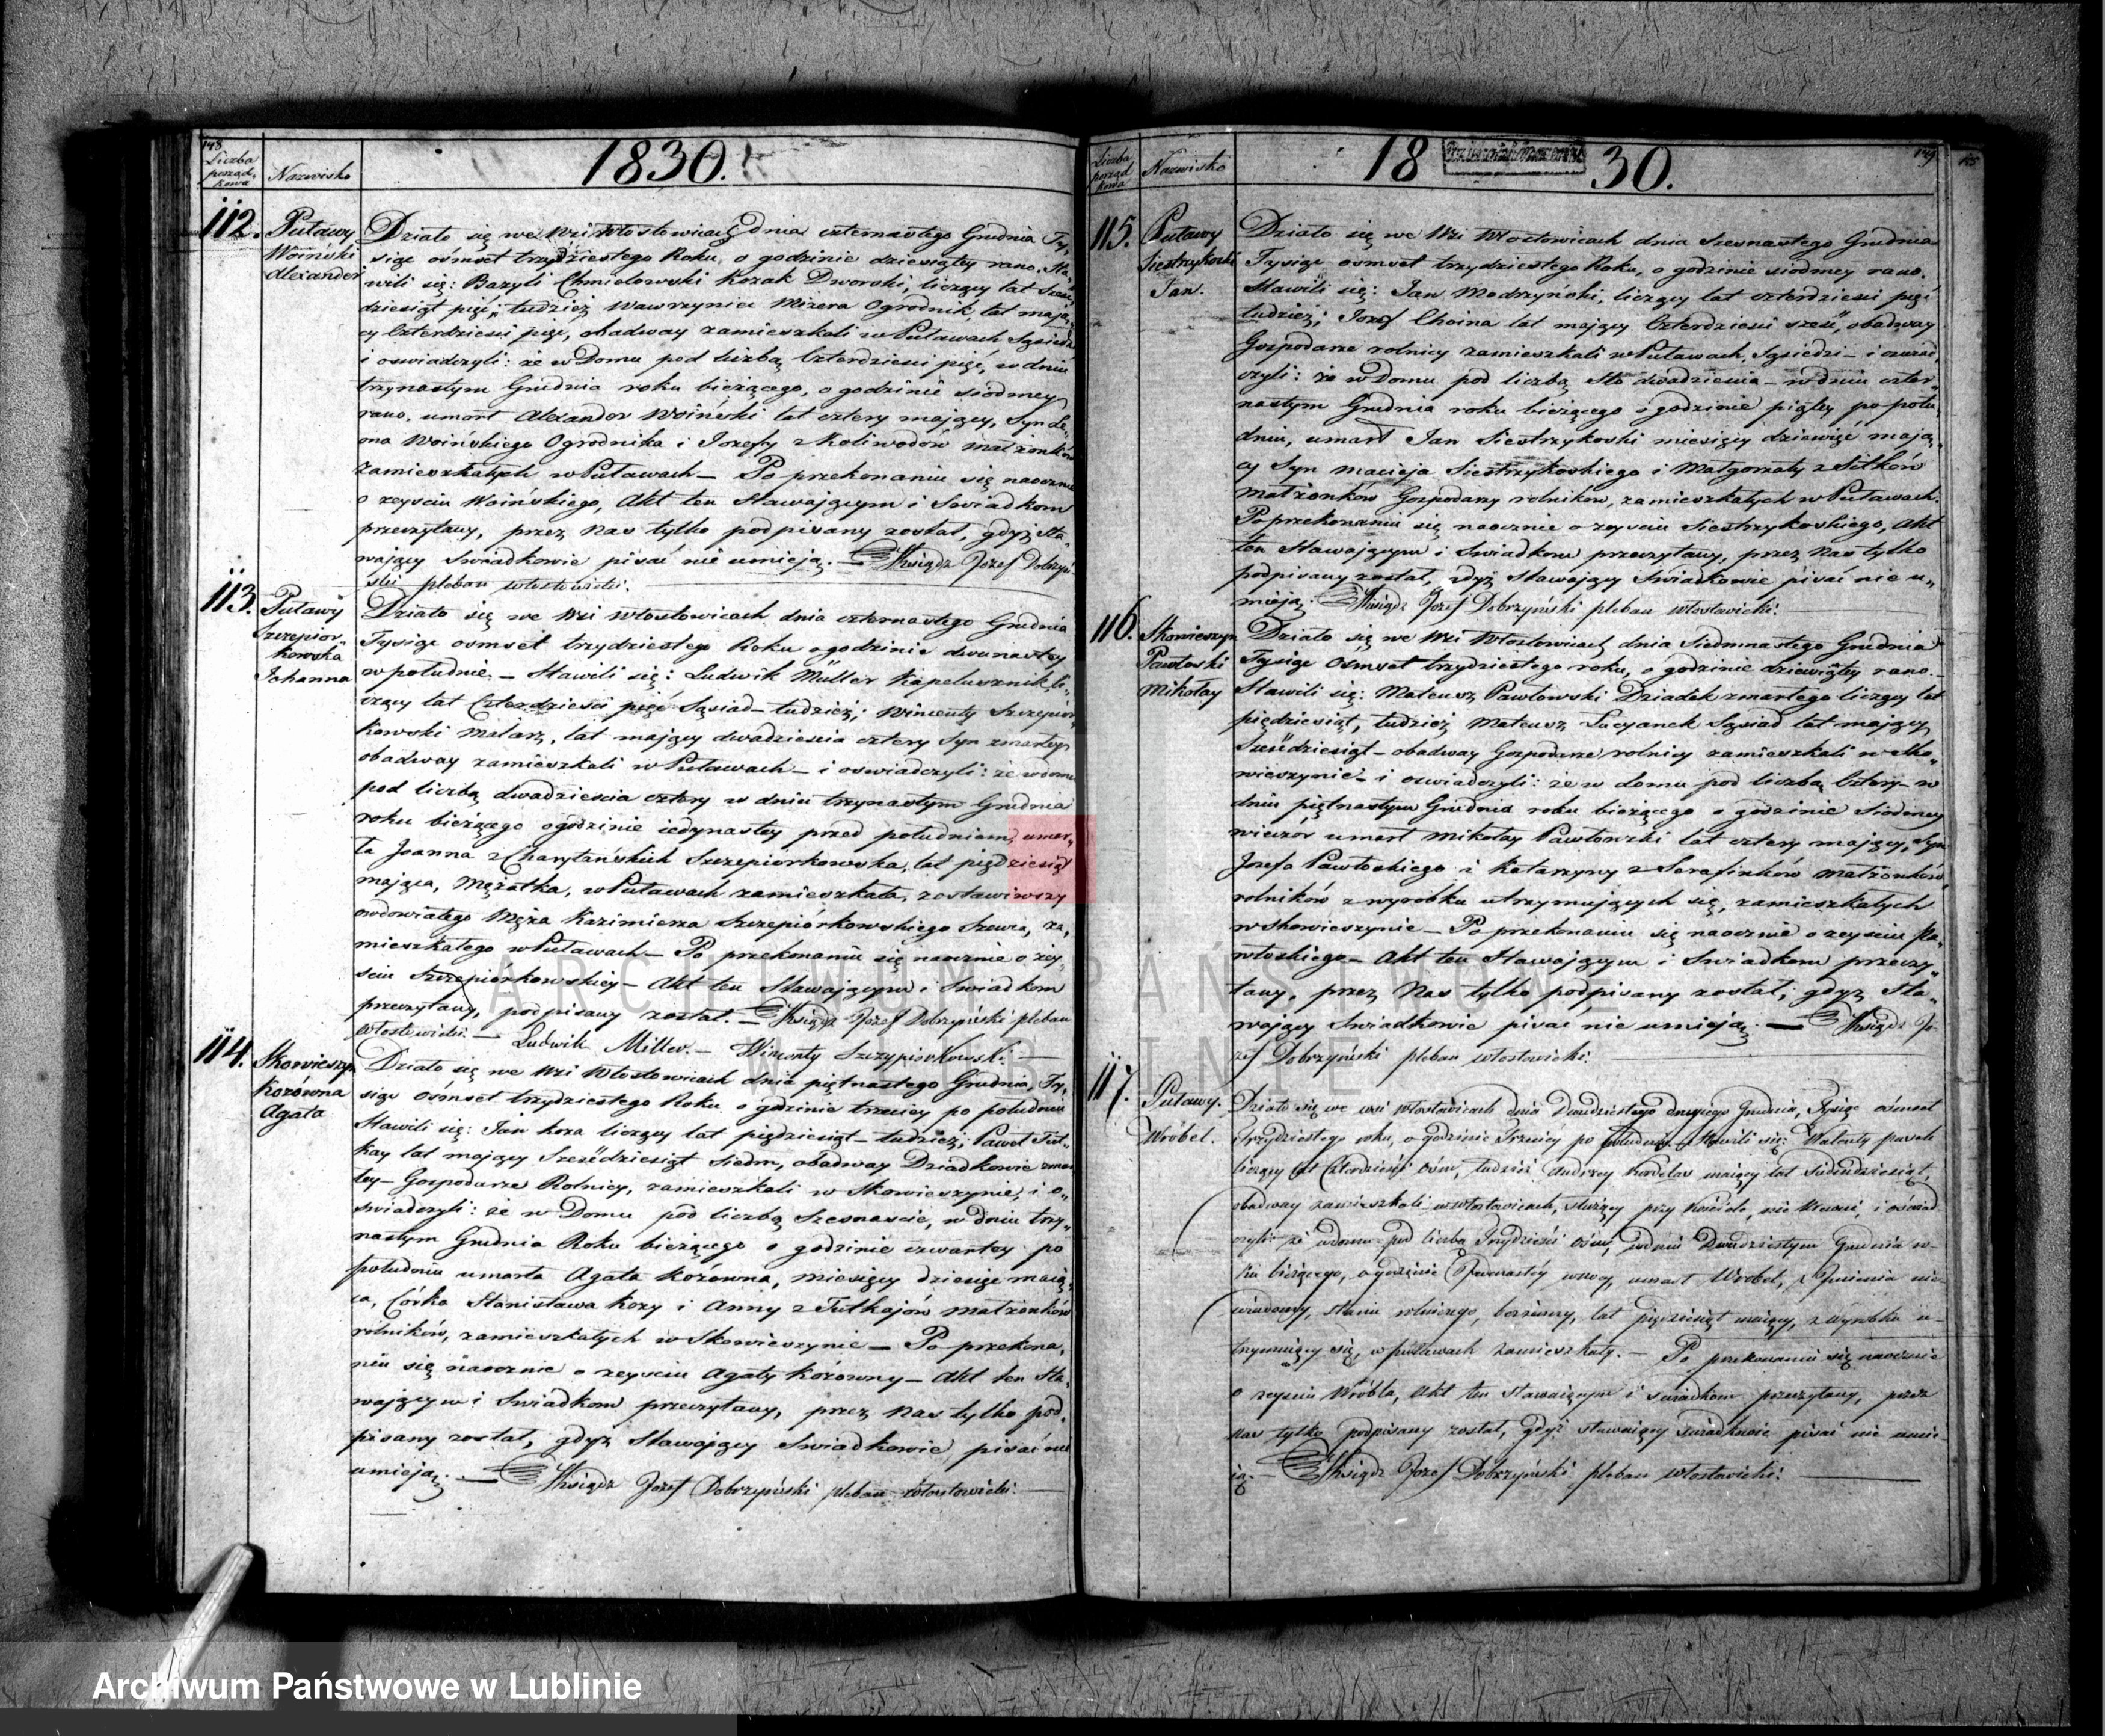 148
Liczba
porząd-
kowa
Nazwisko
1830.
112.
Puławy
Woiński
Alexander
Działo się we Wsi Włostowicach dnia czternastego Grudnia Ty-
siąc ośmset trzydziestego Roku, o godzinie dziesiątey rano. Sta-
wili się: Bazyli Chmielowski Kozak Dworski, liczący lat sześć-
dziesiąt pięć, tudzież Wawrzyniec Mizera Ogrodnik, lat mają-
cy Czterdzieści pięć, obadway zamieszkali w Puławach Sąsiedzi
i oswiadczyli: że w Domu pod liczbą Czterdzieści pięć, w dniu
trzynastym Grudnia roku bieżącego, o godzinie siódmey
rano, umarł Alexander Woiński lat cztery mający, Syn Le-
ona Woińskiego Ogrodnika i Jozefy z Koliwodów małżonków
zamieszkałych w Puławach — Po przekonaniu się naocznie
o zeyściu Woińskiego, Akt ten Stawającym i Swiadkom
przeczytany, przez Nas tylko podpisany został, gdyż Sta-
wający Swiadkowie pisać nie umieją. — Xsiądz Jozef Dobrzyń-
ski pleban włostowicki.
113.
Puławy
Szczepior-
kowska
Johanna
Działo się we Wsi Włostowicach dnia czternastego Grudnia
Tysiąc ośmset trzydziestego Roku o godzinie dwunastey
w południe. — Stawili się: Ludwik Müller Kapelusznik li-
czący lat Czterdzieści pięć Sąsiad — tudzież; Wincenty Szczepiór-
kowski Malarz, lat mający dwadzieścia cztery Syn zmarłey
obadway zamieszkali w Puławach — i oswiadczyli: że w domu
pod liczbą dwadzieścia cztery w dniu trzynastym Grudnia
roku bieżącego o godzinie jedynastey przed południem, umar-
ła Joanna z Szczepiorkowska, lat pięćdziesiąt
mająca, Mężatka, w Puławach zamieszkała, zostawiwszy
owdowiałego Męża Kazimierza Szczepiórkowskiego Szewca, za-
mieszkałego w Puławach — Po przekonaniu się naocznie o zey-
ściu Szczepiorkowskiey — Akt ten Stawającym i Swiadkom
przeczytany, podpisany został. — Xsiądz Jozef Dobrzyński pleban
włostowicki. — Ludwik Miller. — Wincenty Szczypiorkowski. —
114.
Skowieszyn
Kozówna
Agata
Działo się we Wsi Włostowicach dnia piętnastego Grudnia, Ty-
siąc ośmset trzydziestego Roku o godzinie trzeciey po południu
Stawili się: Jan Koza liczący lat pięćdziesiąt — tudzież; Paweł Tut-
kay lat mający Sześćdziesiąt siedm, obadway Dziadkowie zmar-
łey — Gospodarze Rolnicy, zamieszkali w Skowieszynie, i o-
swiadczyli: że w Domu pod liczbą Szesnaście, w dniu trzy-
nastym Grudnia Roku bieżącego o godzinie czwartey po
południu umarła Agata Kozówna, miesięcy dziesięć mają-
ca, Córka Stanisława Kozy i Anny z Tutkajów małżonków
rolników, zamieszkałych w Skowieszynie — Po przekona-
niu się naocznie o zeyściu Agaty Kozówny — Akt ten Sta-
wającym i Swiadkom przeczytany, przez Nas tylko pod-
pisany został, gdyż Stawający Swiadkowie pisać nie
umieją. — Xsiądz Jozef Dobrzyński pleban włostowicki. —
Liczba
porząd-
kowa
Nazwisko
18 30.
149
115.
Puławy
Siestrzykoski
Jan.
Działo się we Wsi Włostowicach dnia Szesnastego Grudnia
Tysiąc ośmset trzydziestego Roku, o godzinie siódmey rano.
Stawili się: Jan Modrzyński, liczący lat czterdzieści pięć
tudzież; Jozef Choina lat mający Czterdzieści sześć, obadway
Gospodarze rolnicy zamieszkali w Puławach, Sąsiedzi — i oswiad-
czyli: że w Domu pod liczbą Sto dwadzieścia — w dniu czter-
nastym Grudnia roku bieżącego o godzinie piątey po połu-
dniu, umarł Jan Siestrzykoski miesięcy dziewięć mają-
cy Syn Macieja Siestrzykoskiego i Małgorzaty z Sitków
małżonków Gospodarzy rolników, zamieszkałych w Puławach.
Po przekonaniu się naocznie o zeyściu Siestrzykoskiego, Akt
ten Stawającym i Swiadkom przeczytany, przez Nas tylko
podpisany został, gdyż Stawający Swiadkowie pisać nie u-
mieją. Xsiądz Jozef Dobrzyński pleban włostowicki.
116.
Skowieszyn
Pawłoski
Mikołay
Działo się we Wsi Włostowicach dnia Siedmnastego Grudnia
Tysiąc ośmset trzydziestego roku, o godzinie dziewiątey rano.
Stawili się: Mateusz Pawłowski Dziadek zmarłego liczący lat
pięćdziesiąt, tudzież Mateusz Lucyanek Sąsiad lat mający
Sześćdziesiąt — obadway Gospodarze rolnicy zamieszkali w Sko-
wieszynie — i oswiadczyli: że w domu pod liczbą Cztery — w
dniu piętnastym Grudnia roku bieżącego o godzinie Siódmey
wieczór umarł Mikołay Pawłowski lat cztery mający, Syn
Jozefa Pawłoskiego i Katarzyny z Serafinków małżonków
rolników z wyrobku utrzymujących się, zamieszkałych
w Skowieszynie — Po przekonaniu się naocznie o zeyściu Pa-
włoskiego — Akt ten Stawającym i Swiadkom przeczy-
tany, przez Nas tylko podpisany został, gdyż Sta-
wający Swiadkowie pisać nie umieją. — Xsiądz Jo-
zef Dobrzyński pleban włostowicki.
117.
Puławy.
Wróbel.
Działo się we wsi Włostowicach dnia Dwudziestego drugiego Grudnia, Tysiąc ośmset
trzydziestego roku, o godzinie Trzeciey po południu, Stawili się: Walenty
liczący lat Czterdzieści ośm, tudzież Andrzey maiący lat Siedmdziesiąt,
obadway zamieszkali w Włostowicach, służący przy kościele, i oświad-
czyli: że w domu pod liczbą Trzydzieści ośm, w dniu Dwudziestym Grudnia ro-
ku bieżącego, o godzinie Dwunastéy w nocy, umarł Wróbel, z Imienia nie-
wiadomy, stanu rolniczego, bezżenny, lat pięćdziesiąt maiący, z wyrobku u-
trzymuiący się, w Puławach zamieszkały. — Po przekonaniu się naocznie
o zeyściu Wróbla, Akt ten stawaiącym i swiadkom przeczytany, przez
nas tylko podpisany został, gdyż stawaiący swiadkowie pisać nie umie-
ią. Xsiądz Jozef Dobrzyński pleban włostowicki. —
ARCHIWUM PAŃSTWOWE
W LUBLINIE
Archiwum Państwowe w Lublinie